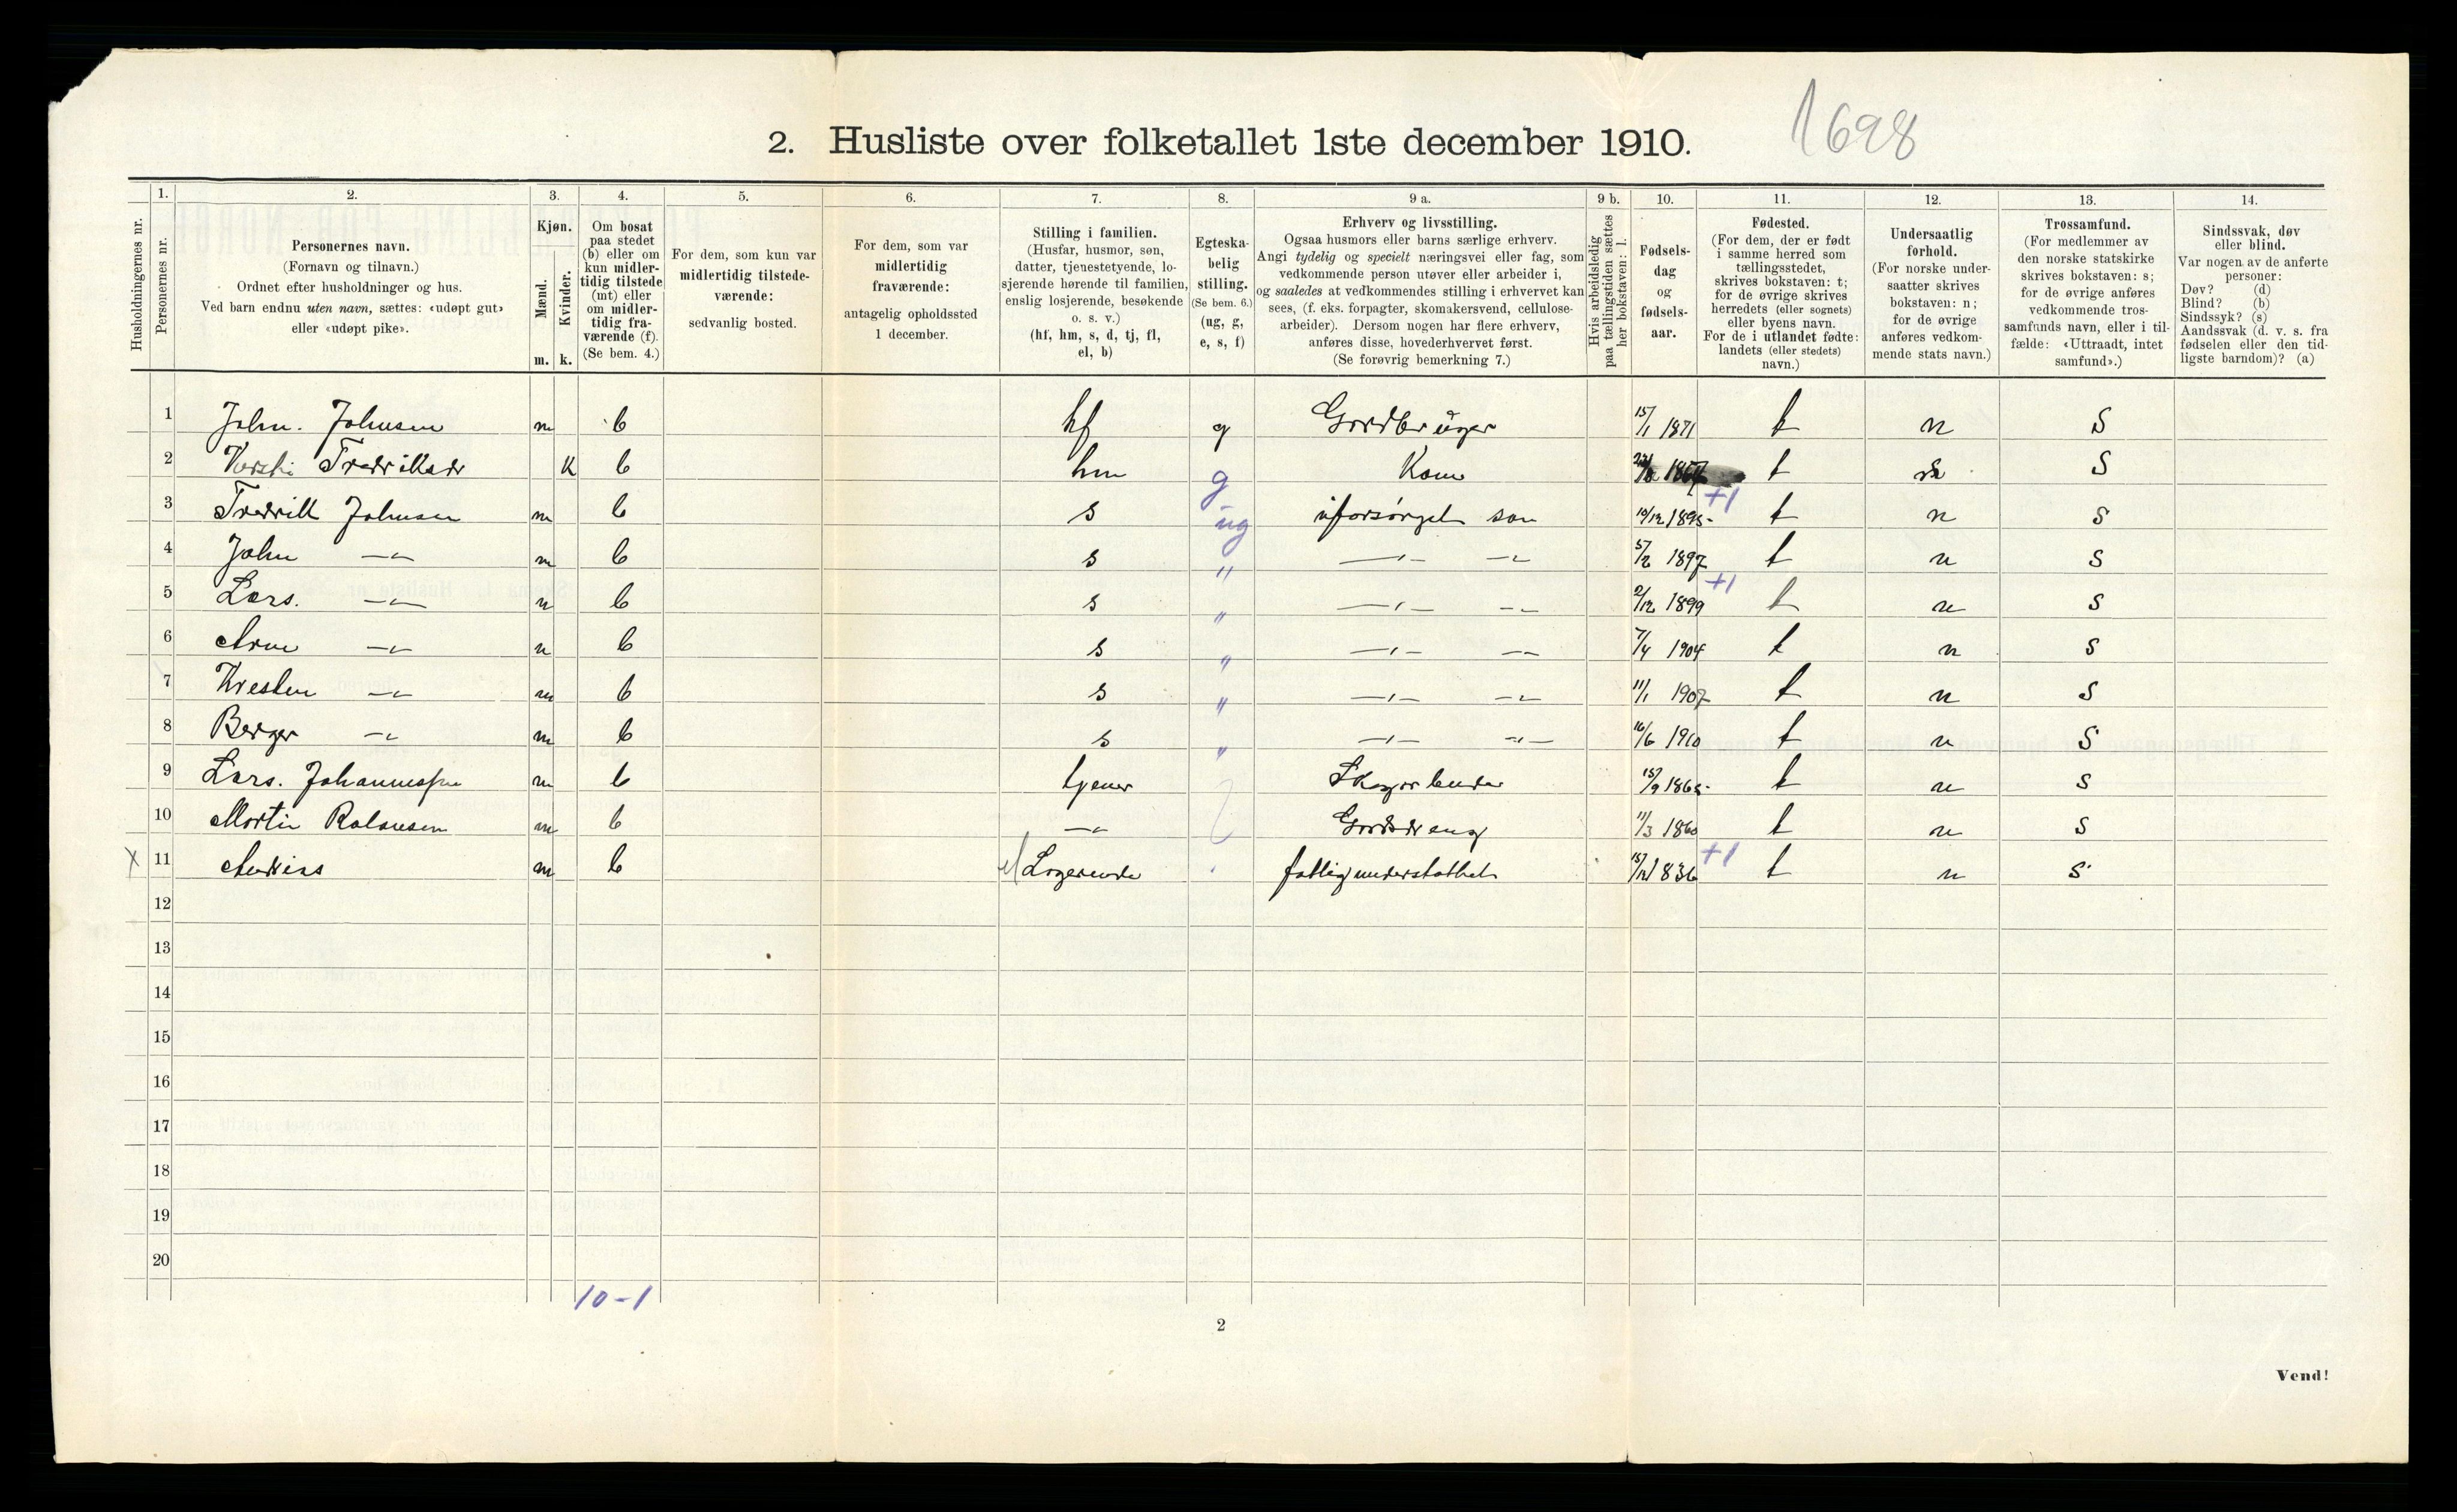 1698
2. Husliste over folketallet 1ste december 1910.
Husholdningernes nr.
1. Personernes nr.
2. Personernes navn. (Fornavn og tilnavn.) Ordnet efter husholdninger og hus. Ved barn endnu uten navn, sættes: «udøpt gut» eller «udøpt pike».
3. Kjøn. Mænd. m. Kvinder. k.
4. Om bosat paa stedet (b) eller om kun midlertidig tilstede (mt) eller om midlertidig fraværende (f). (Se bem. 4.)
5. For dem, som kun var midlertidig tilstedeværende: sedvanlig bosted.
6. For dem, som var midlertidig fraværende: antagelig opholdssted 1 december.
7. Stilling i familien. (Husfar, husmor, søn, datter, tjenestetyende, losjerende hørende til familien, enslig losjerende, besøkende o. s. v.) (hf, hm, s, d, tj, fl, el, b)
8. Egteskabelig stilling. (Se bem. 6.) (ug, g, e, s, f)
9 a. Erhverv og livsstilling. Ogsaa husmors eller barns særlige erhverv. Angi tydelig og specielt næringsvei eller fag, som vedkommende person utøver eller arbeider i, og saaledes at vedkommendes stilling i erhvervet kan sees, (f. eks. forpagter, skomakersvend, cellulosearbeider). Dersom nogen har flere erhverv, anføres disse, hovederhvervet først. (Se forøvrig bemerkning 7.)
9 b. Hvis arbeidsledig paa tællingstiden sættes her bokstaven: l.
10. Fødselsdag og fødselsaar.
11. Fødested. (For dem, der er født i samme herred som tællingsstedet, skrives bokstaven: t; for de øvrige skrives herredets (eller sognets) eller byens navn. For de i utlandet fødte: landets (eller stedets) navn.)
12. Undersaatlig forhold. (For norske undersaatter skrives bokstaven: n; for de øvrige anføres vedkommende stats navn.)
13. Trossamfund. (For medlemmer av den norske statskirke skrives bokstaven: s; for de øvrige anføres vedkommende trossamfunds navn, eller i tilfælde: «Uttraadt, intet samfund».)
14. Sindssvak, døv eller blind. Var nogen av de anførte personer: Døv? (d) Blind? (b) Sindssyk? (s) Aandssvak (d. v. s. fra fødselen eller den tidligste barndom)? (a)
1 John. Johnsen m b hf g Gordbrüger 15/1 1871 t n S
2 Fredriksdr K b hm g Kone t n S
3 Fredrik Johnsen m b s ug uforsørget søn 10/12 1895 +1 t n S
4 John —"— m b s " —"— —"— 5/2 1897 t n S
5 Lars. —"— m b s " —"— —"— 2/12 1899 +1 t n S
6 Arne —"— m b s " —"— —"— 7/4 1904 t n S
7 Kresten —"— m b s " —"— —"— 11/1 1907 t n S
8 Berger —"— m b s " —"— —"— 16/6 1910 t n S
9 Lars. Johannessen m b tjener 15/9 1865 t n S
10 Martin m b —"— Gordsdreng 11/3 1860 t n S
X 11 m b el Logerende fattigunderstøttet 15/12 1836 +1 t n S
12
13
14
15
16
17
18
19
20
10-1
2
Vend!